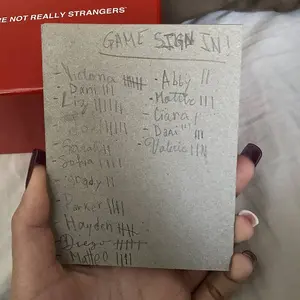 RE NOT REALLY STRANGERS™
GAME SIGN IN!
- Victoria |||||
- Dani |||
- Liz
Sarah
- Sofia ||||
- Parker ||||
- Hayden
- Diego
- Matteo ||||
- Abby ||
- Mattie |||
- Ciana |
- Dani |||
- Valerie ||||